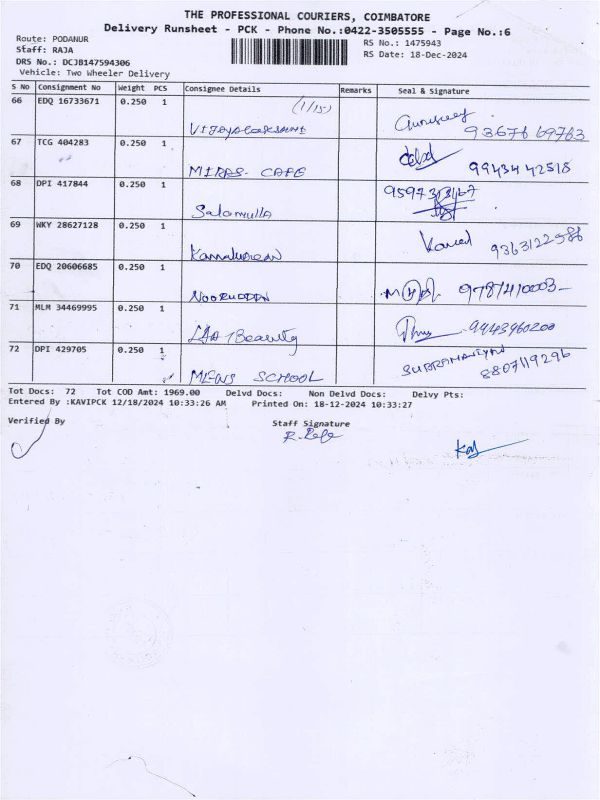 THE PROFESSIONAL COURIERS, COIMBATORE
Delivery Runsheet - PCK - Phone No.:0422-3505555 - Page No.:6
Route: PODANUR
RS No.: 1475943
Staff: RAJA
RS Date: 18-Dec-2024
DRS No.: DCJB147594306
Vehicle: Two Wheeler Delivery
S No Consignment No Weight PCS Consignee Details Remarks Seal & Signature
66 EDQ 16733671 0.250 1
67 TCG 404283 0.250 1 MIRRS- CAFE 99434 42518
68 DPI 417844 0.250 1 Salamulla
69 WKY 28627128 0.250 1
70 EDQ 20606685 0.250 1 NOORUDDIN
71 MLM 34469995 0.250 1 Beauty 9943960200
72 DPI 429705 0.250 1 MENS SCHOOL SUBRAMANIYAN 8807119296
Tot Docs: 72 Tot COD Amt: 1969.00 Delvd Docs: Non Delvd Docs: Delvy Pts:
Entered By :KAVIPCK 12/18/2024 10:33:26 AM Printed On: 18-12-2024 10:33:27
Verified By
Staff Signature